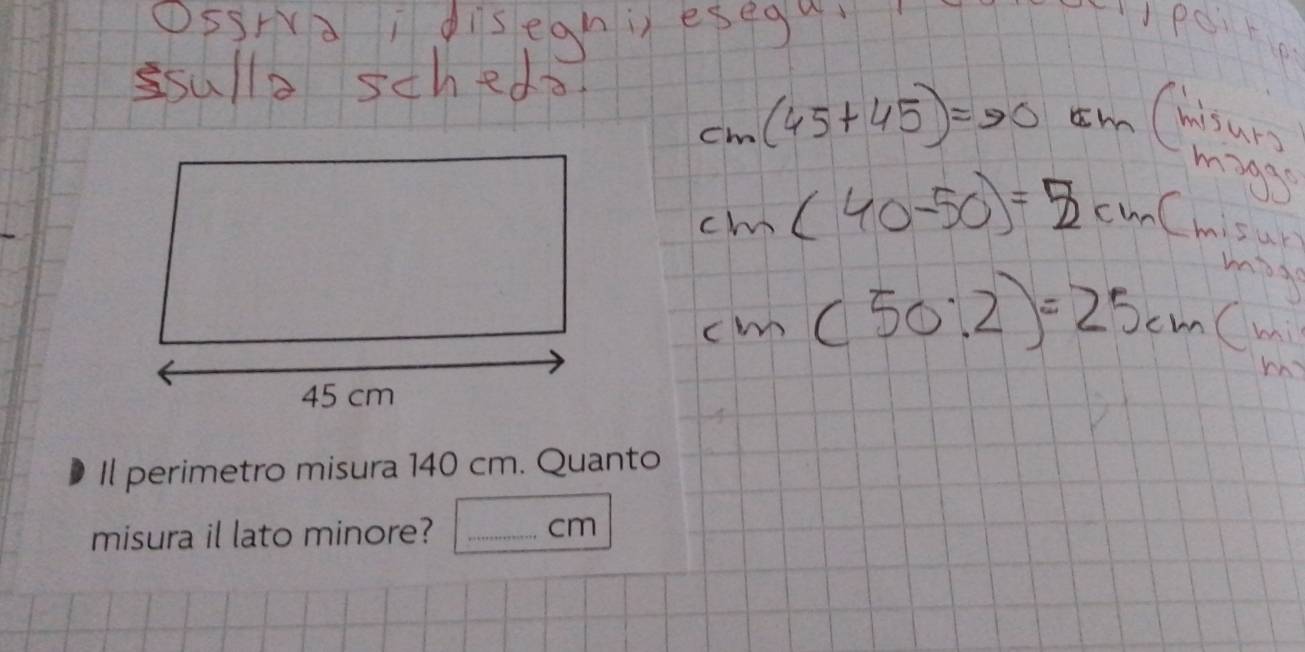 Ossrva i disegni, esegu
sulla scheda.
cm (45+45)=90 cm (misura
maggo
cm (40-50)= cm (misur
magg
cm (50:2)=25cm (mi
m
45 cm
Il perimetro misura 140 cm. Quanto
misura il lato minore? ............ cm